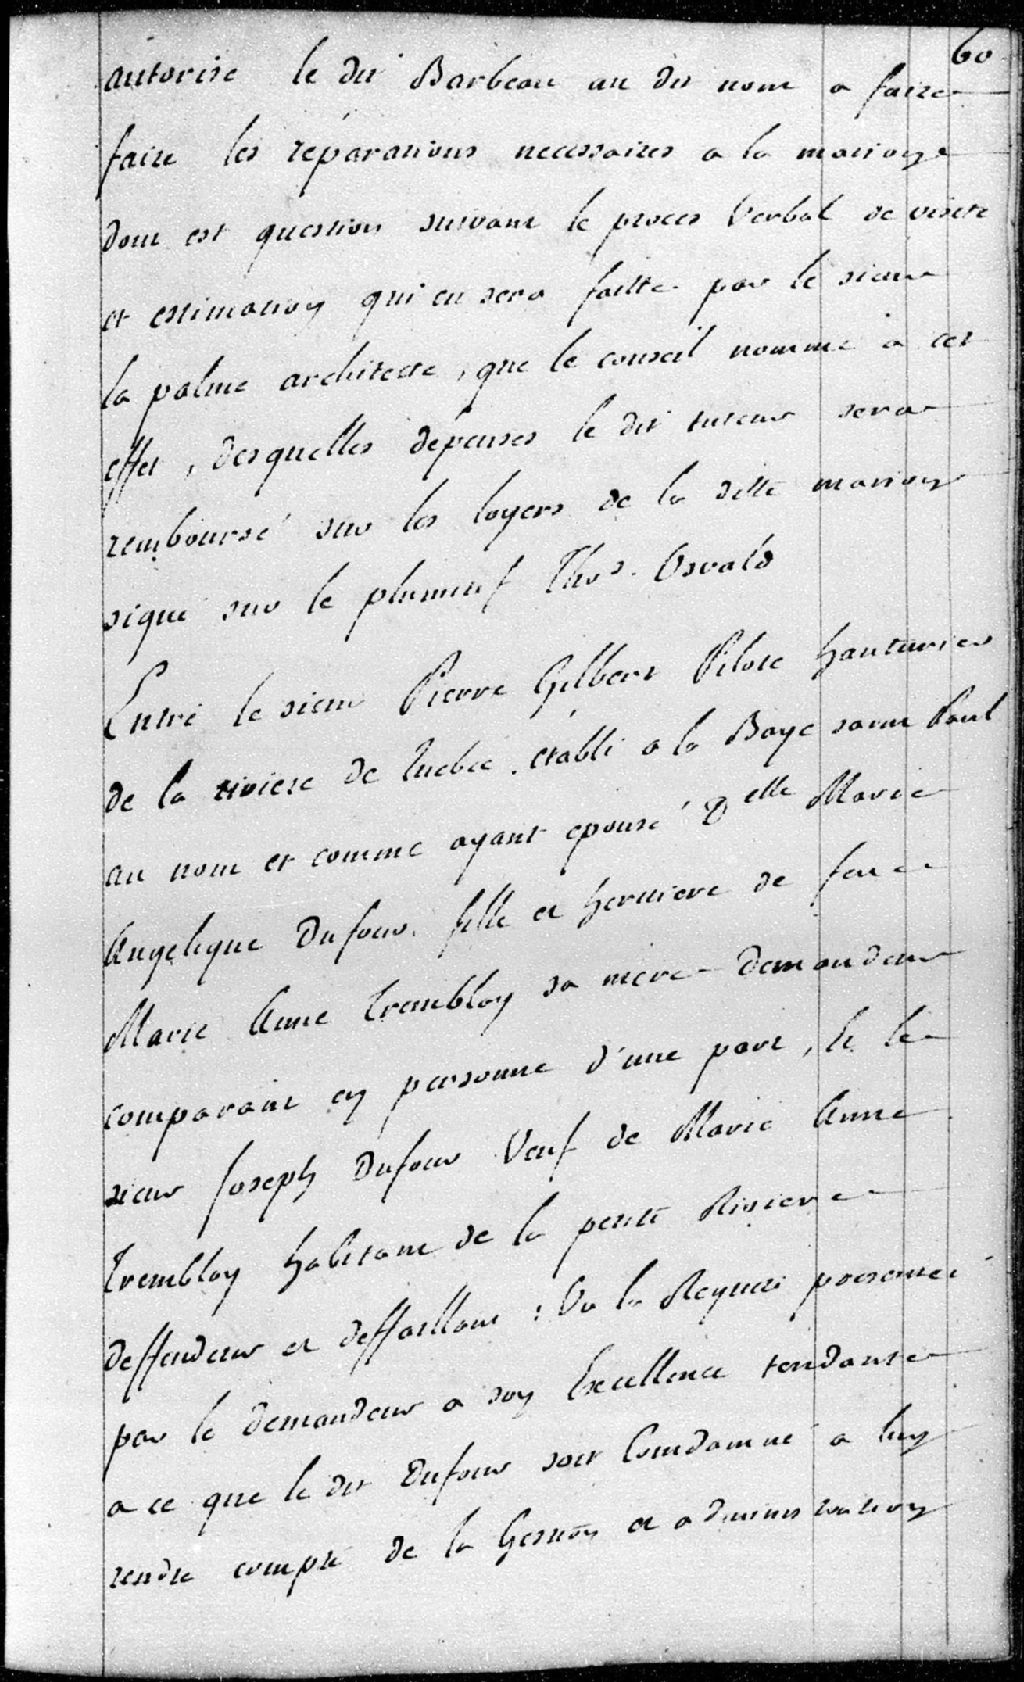 60
autorise le dit Barbeau au dit nom a faire
faire les réparations necessaires a la maison
dont est question suivant le procès Verbal de visite
et estimation qui en sera faitte par le sieur
la palme architecte, que le conseil nomme a cet
effet, desquelles depenses le dit tuteur sera
remboursé sur les loyers de la ditte maison
signé sur le plumitif Thos. Osvald
Entre le sieur Pierre Gilbert Pilote hauturier
de la riviere de Quebec. établi a la Baye saint Paul
au nom et comme ayant epousé Delle Marie
Angelique Dufour. fille et heritiere de feue
Marie Anne Tremblay sa mere demandeur
comparant en personne d'une part, Et le
sieur Joseph Dufour Veuf de Marie Anne
Tremblay habitant de la petite Riviere
deffendeur et deffaillant : Vu la Requete presentée
par le demandeur a son Excellence tendante
a ce que le dit Dufour soit Condamné a luy
rendre compte de la Gestion et administration